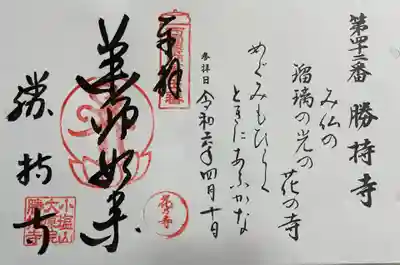 第四十二番 勝持寺
み仏の
瑠璃の光の
花の寺
めぐみもひらく
ときにあふかな
参拝日 令和六年四月十日
奉拝
薬師如来
勝持寺
花の寺
小塩山
大原院
勝持寺